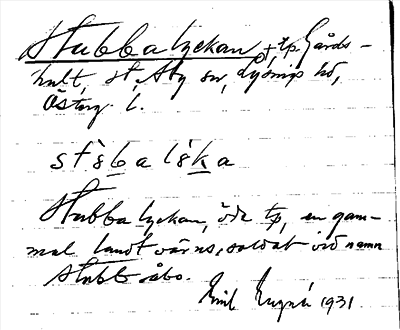 Stubbalyckan, tp, Gårds-
hult, st, Aby sn, Lysings hd,
Österg. l.
stɛ̀balɛ̀ka
Stubbalyckan, öde tp, en gam-
mal landtvärns-soldat vid namn
Stubb åbo.
Emil 1931